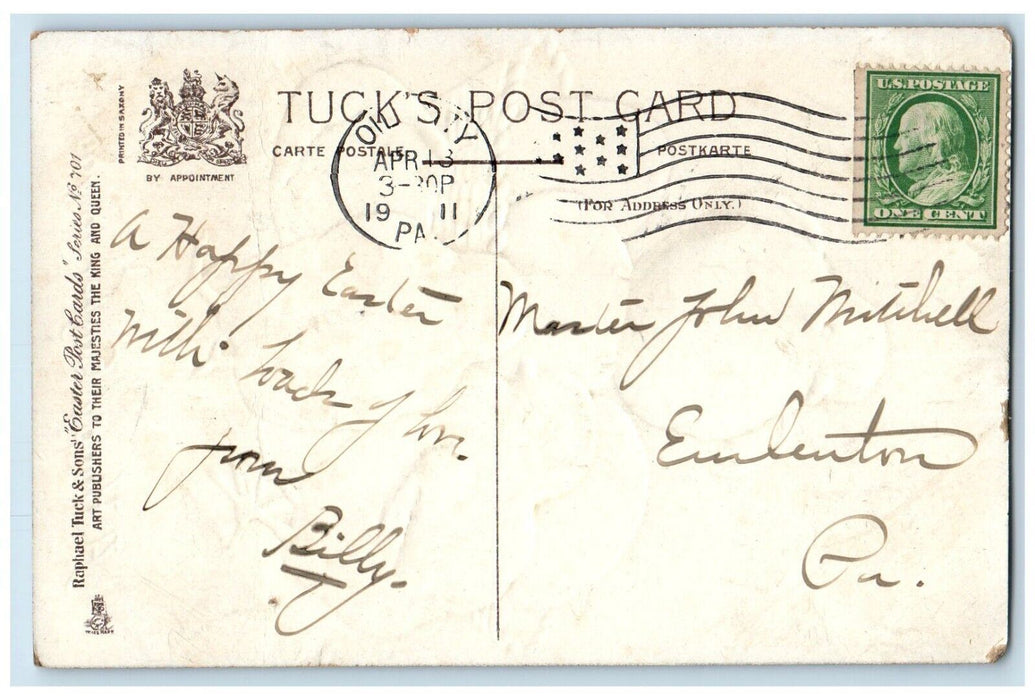 TUCK'S POST CARD
CARTE POSTALE POSTKARTE
(FOR ADDRESS ONLY.)
BY APPOINTMENT
PRINTED IN SAXONY
Raphael Tuck & Sons' "Easter Post Cards" Series No 701
ART PUBLISHERS TO THEIR MAJESTIES THE KING AND QUEEN.
TRADE MARK
OIL CITY
APR 13
3-30P
19 11
PA.
U.S. POSTAGE
ONE CENT
A Happy Easter
with loads of love
from
Billy.
Master John Mitchell
Emlenton
Pa.